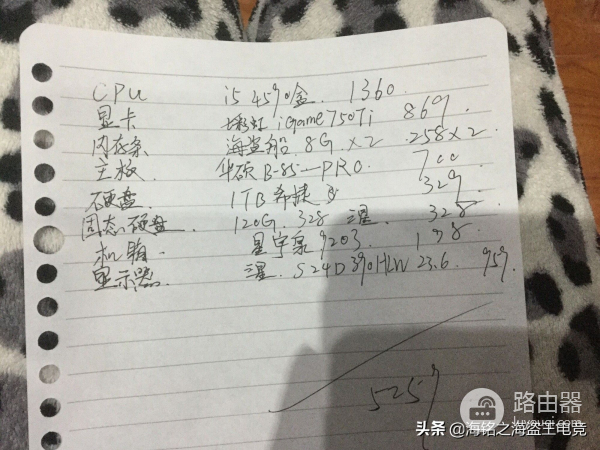 CPU i5 4590盒. 1360.
显卡 七彩虹 iGame750Ti 869.
内存条 海盗船. 8G×2 .258×2
主板 华硕B-85—PRO. 700
硬盘. 1TB希捷 329.
固态硬盘. 120G. 328 三星. 328
机箱. 星宇泉9203. 198.
显示器. 三星. S24D390HLW 23.6. 959.
5259
路由器
luyouqi.com
头条 @海铭之海盗王电竞